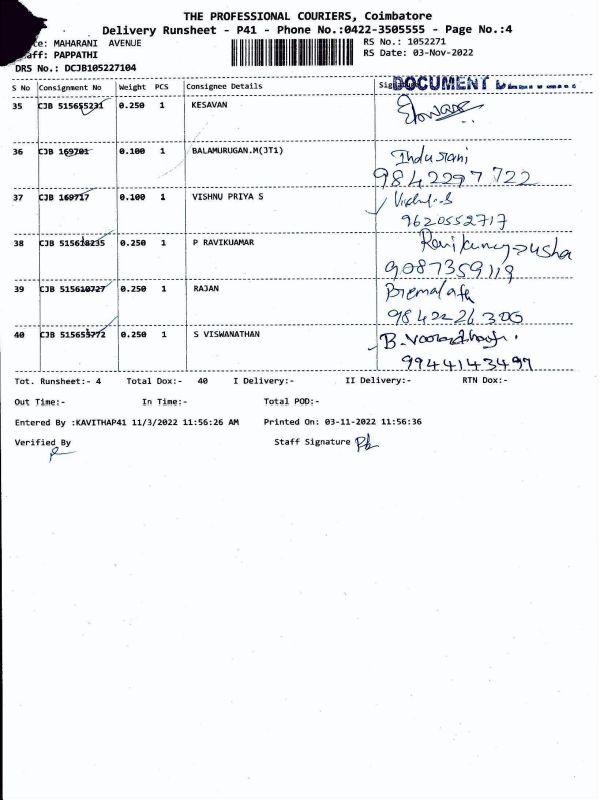 THE PROFESSIONAL COURIERS, Coimbatore
Delivery Runsheet - P41 - Phone No.:0422-3505555 - Page No.:4
MAHARANI AVENUE
RS No.: 1052271
PAPPATHI
RS Date: 03-Nov-2022
DRS No.: DCJB105227104
S No Consignment No Weight PCS Consignee Details DOCUMENT
35 CJB 515655231 0.250 1 KESAVAN
36 CJB 169701 0.100 1 BALAMURUGAN.M(JT1) Indurani
9842297722
37 CJB 169717 0.100 1 VISHNU PRIYA S
9620552717
38 CJB 515618235 0.250 1 P RAVIKUAMAR
9087359119
39 CJB 515610727 0.250 1 RAJAN
9842226300
40 CJB 515655772 0.250 1 S VISWANATHAN
9944143497
Tot. Runsheet:- 4 Total Dox:- 40 I Delivery:- II Delivery:- RTN Dox:-
Out Time:- In Time:- Total POD:-
Entered By :KAVITHAP41 11/3/2022 11:56:26 AM Printed On: 03-11-2022 11:56:36
Verified By Staff Signature